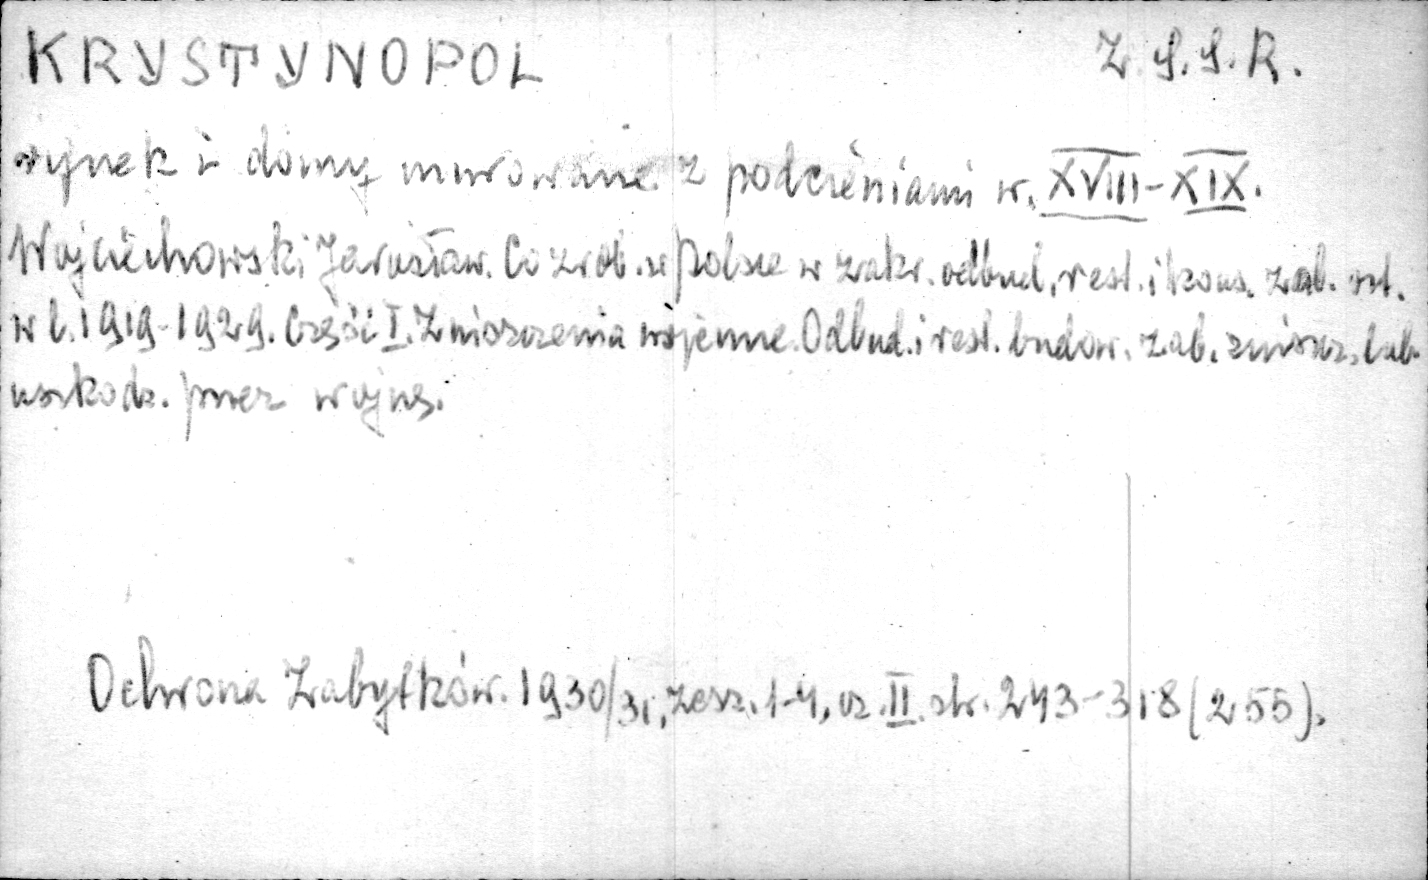 KRYSTYNOPOL Z.S.S.R.
rynek i domy murowane z podcieniami w. XVIII-XIX.
Wojciechowski Jarosław. Co zrob. w Polsce w zakr. odbud., rest. i kons. zab. szt.
w l. 1919-1929. Część I. Zniszczenia wojenne. Odbud. i rest. budow. zab. zniszcz. lub
uszkodz. przez wojnę.
Ochrona Zabytków. 1930/31, zesz. 1-4, cz. II. str. 243-318 (255).